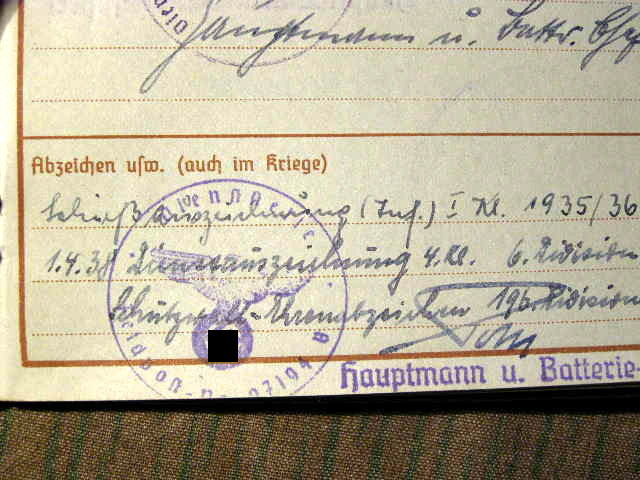 Hauptmann u. Battr. Chef
Abzeichen usw. (auch im Kriege)
Schießauszeichnung (Inf.) I Kl. 1935/36
1.4.38 Dienstauszeichnung 4. Kl. 6. Division
Schutzwall-Ehrenabzeichen 196. Division
Hauptmann u. Batterie-